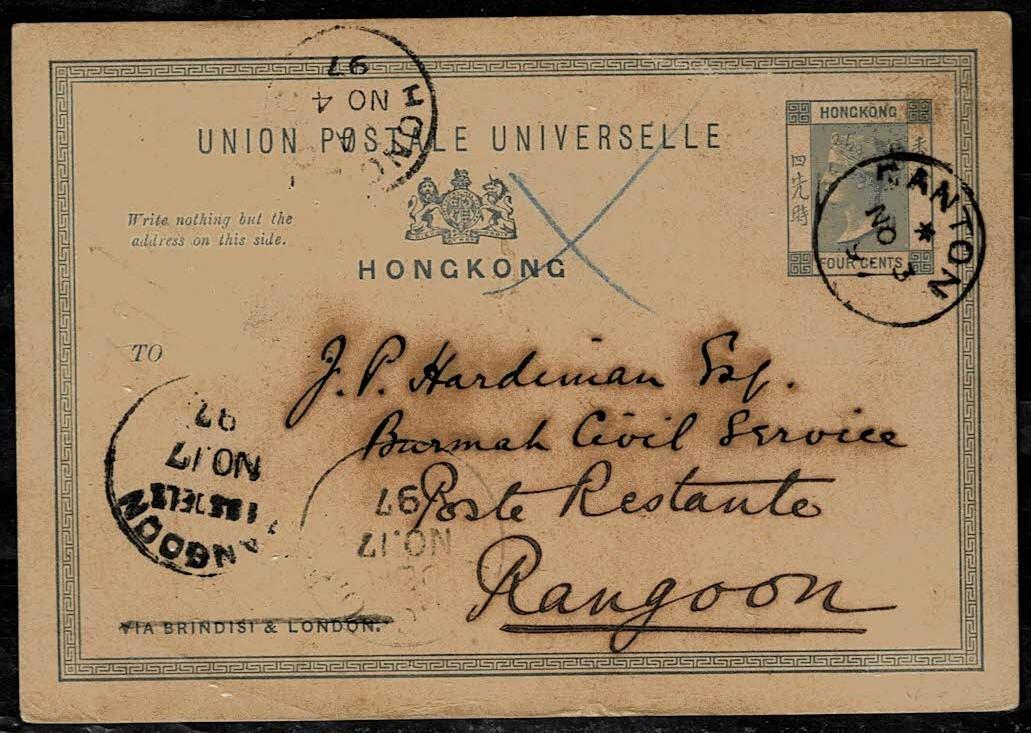 UNION POSTALE UNIVERSELLE
Write nothing but the
address on this side.
HONGKONG
HONGKONG
四先時
FOUR CENTS
CANTON
NO 3
97
HONG
A
NO 4
97
TO
J. P. Hardiman Esq.
Burmah Civil Service
Poste Restante
Rangoon
RANGOON
NO.17
97
NO.17
97
VIA BRINDISI & LONDON.